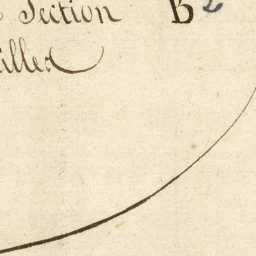 Section B2
illes